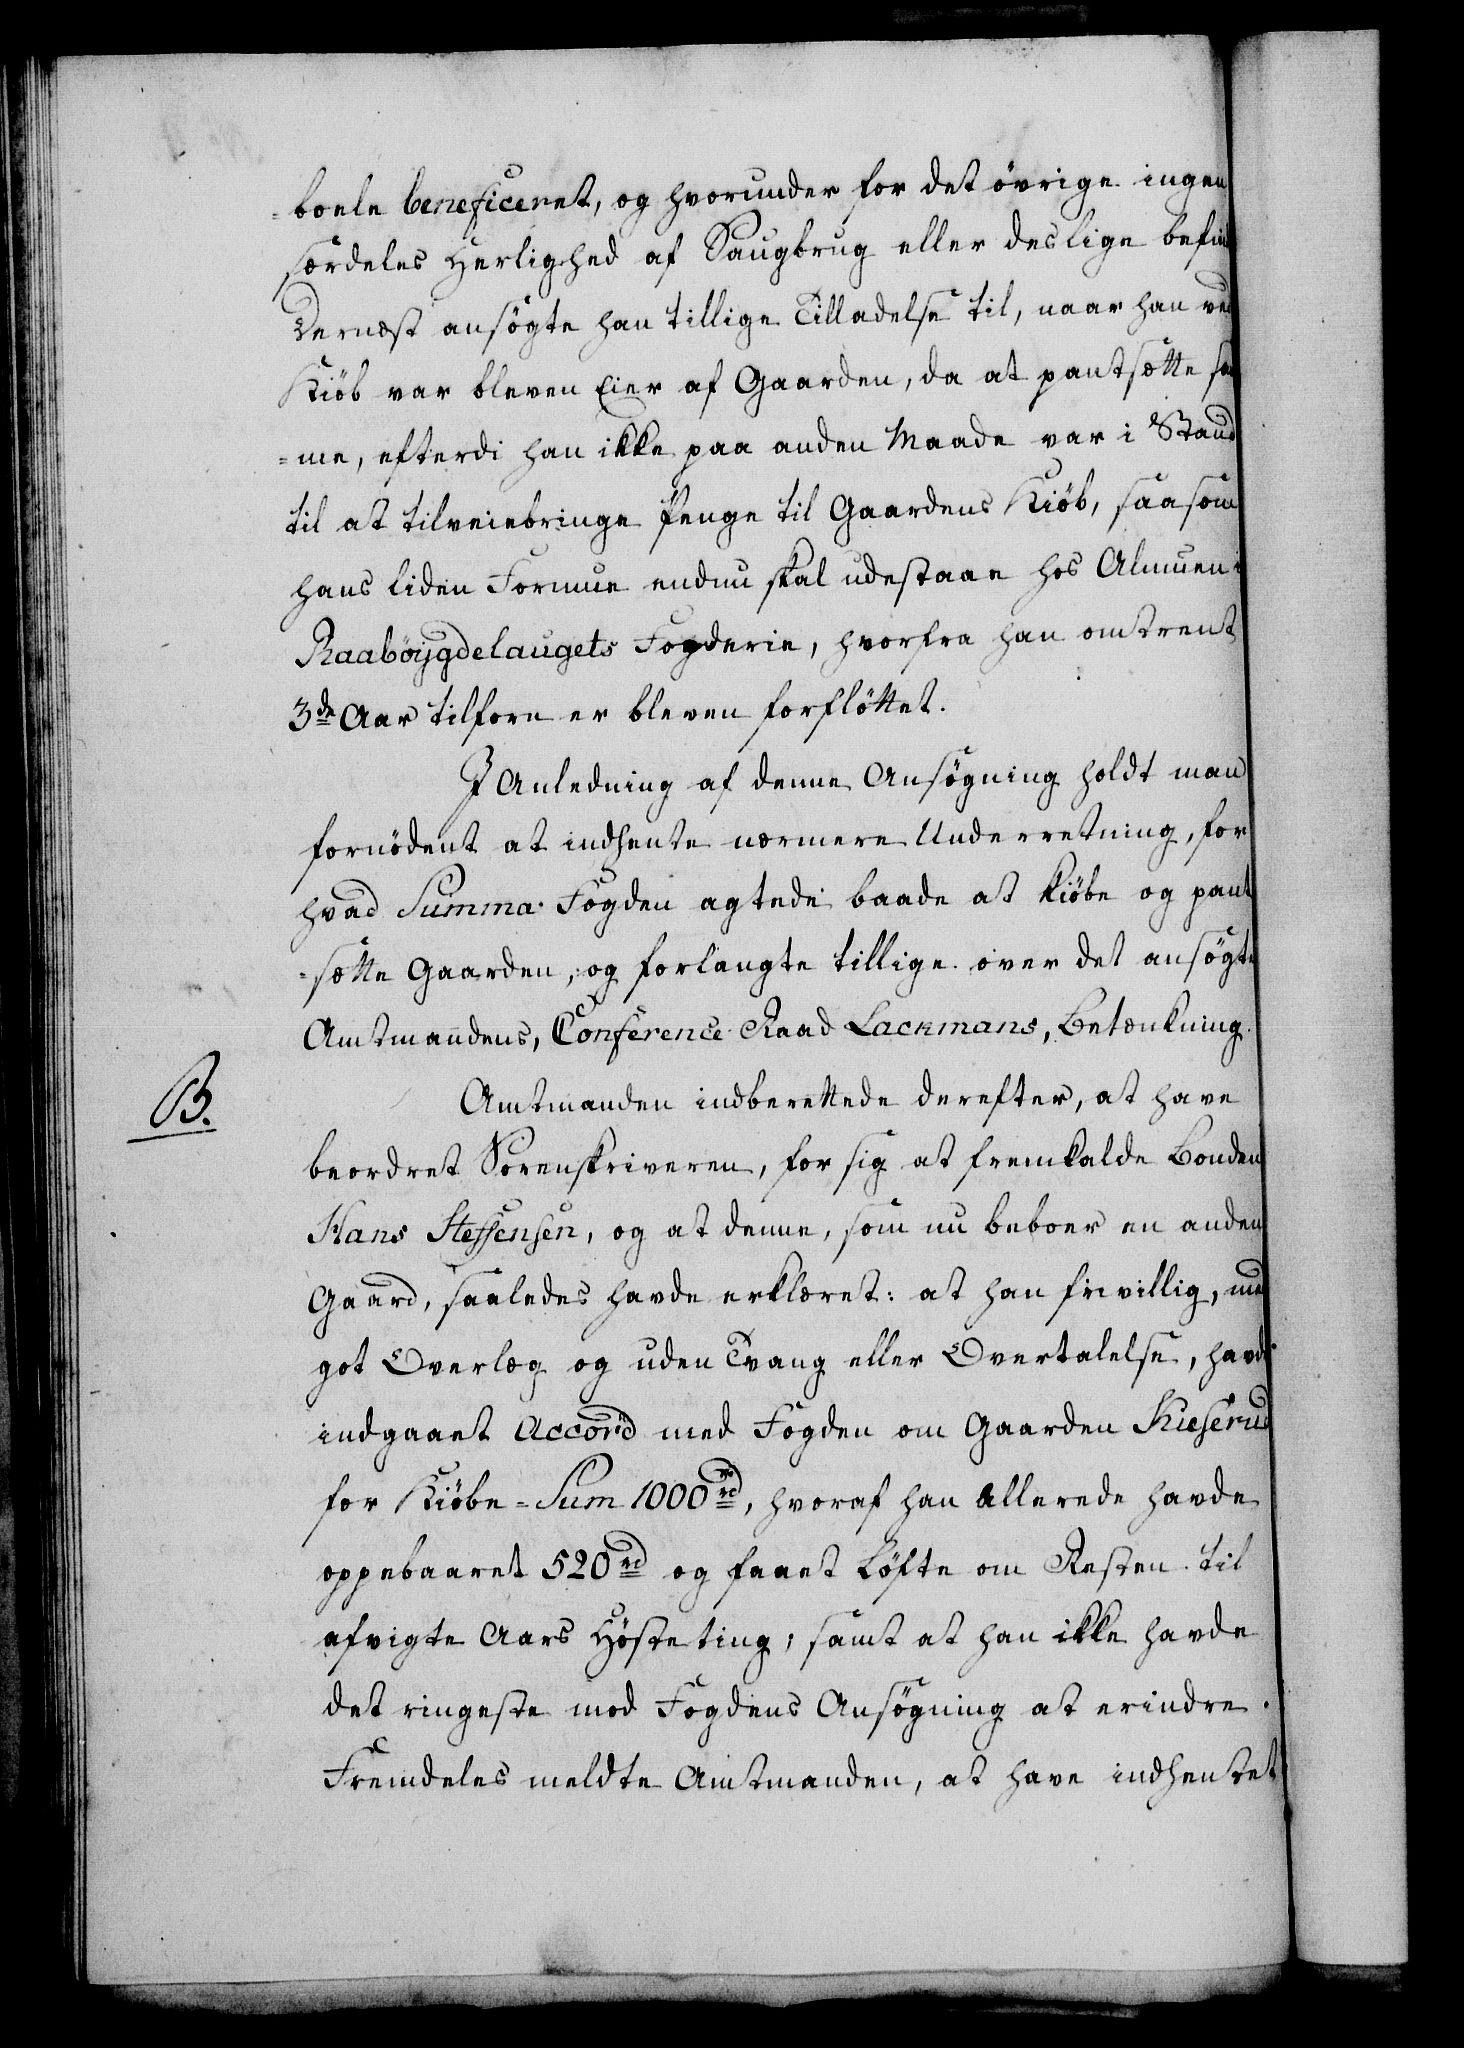 -boele beneficeret, og hvorunder for det övrige ingen
særdeles Herlighed af Saugbrug eller deslige befin
Dernæst ansøgte han tillige Tilladelse til, naar han ved
Kiöb var bleven Eier af Gaarden, da at pantsætte sam
=me, efterdi han ikke paa anden Maade var i Stand
til at tilveiebringe Penge til Gaardens Kiöb, saasom
hans liden Formue endnu skal udestaae hos Almuen i
Raabøygdelaugets Fogderie, hvorfra han omtrent
3de Aar tilforn er bleven forflöttet.
I Anledning af denne Ansøgning holdt man
fornödent at indhente nærmere Underretning, for
hvad Summa Fogden agtede baade at kiöbe og pant
=sætte Gaarden, og forlangte tillige over det ansøgte
Amtmandens, Conference Raad Lackmans, Betænkning.
B.
Amtmanden indberettede derefter, at have
beordret Sorenskriveren, for sig at fremkalde Bonden
Hans Steffensen, og at denne, som nu beboer en anden
Gaard, saaledes havde erklæret: at han frivillig, med
got Overlæg og uden Tvang eller Overtalelse, havde
indgaaet Accord med Fogden om Gaarden Kieserud
for Kiöbe-Sum 1000 rd, hvoraf han allerede havde
oppebaaret 520 rd og faaet Löfte om Resten til
afvigte Aars Hösteting; samt at han ikke havde
det ringeste mod Fogdens Ansøgning at erindre.
Fremdeles meldte Amtmanden, at have indhentet